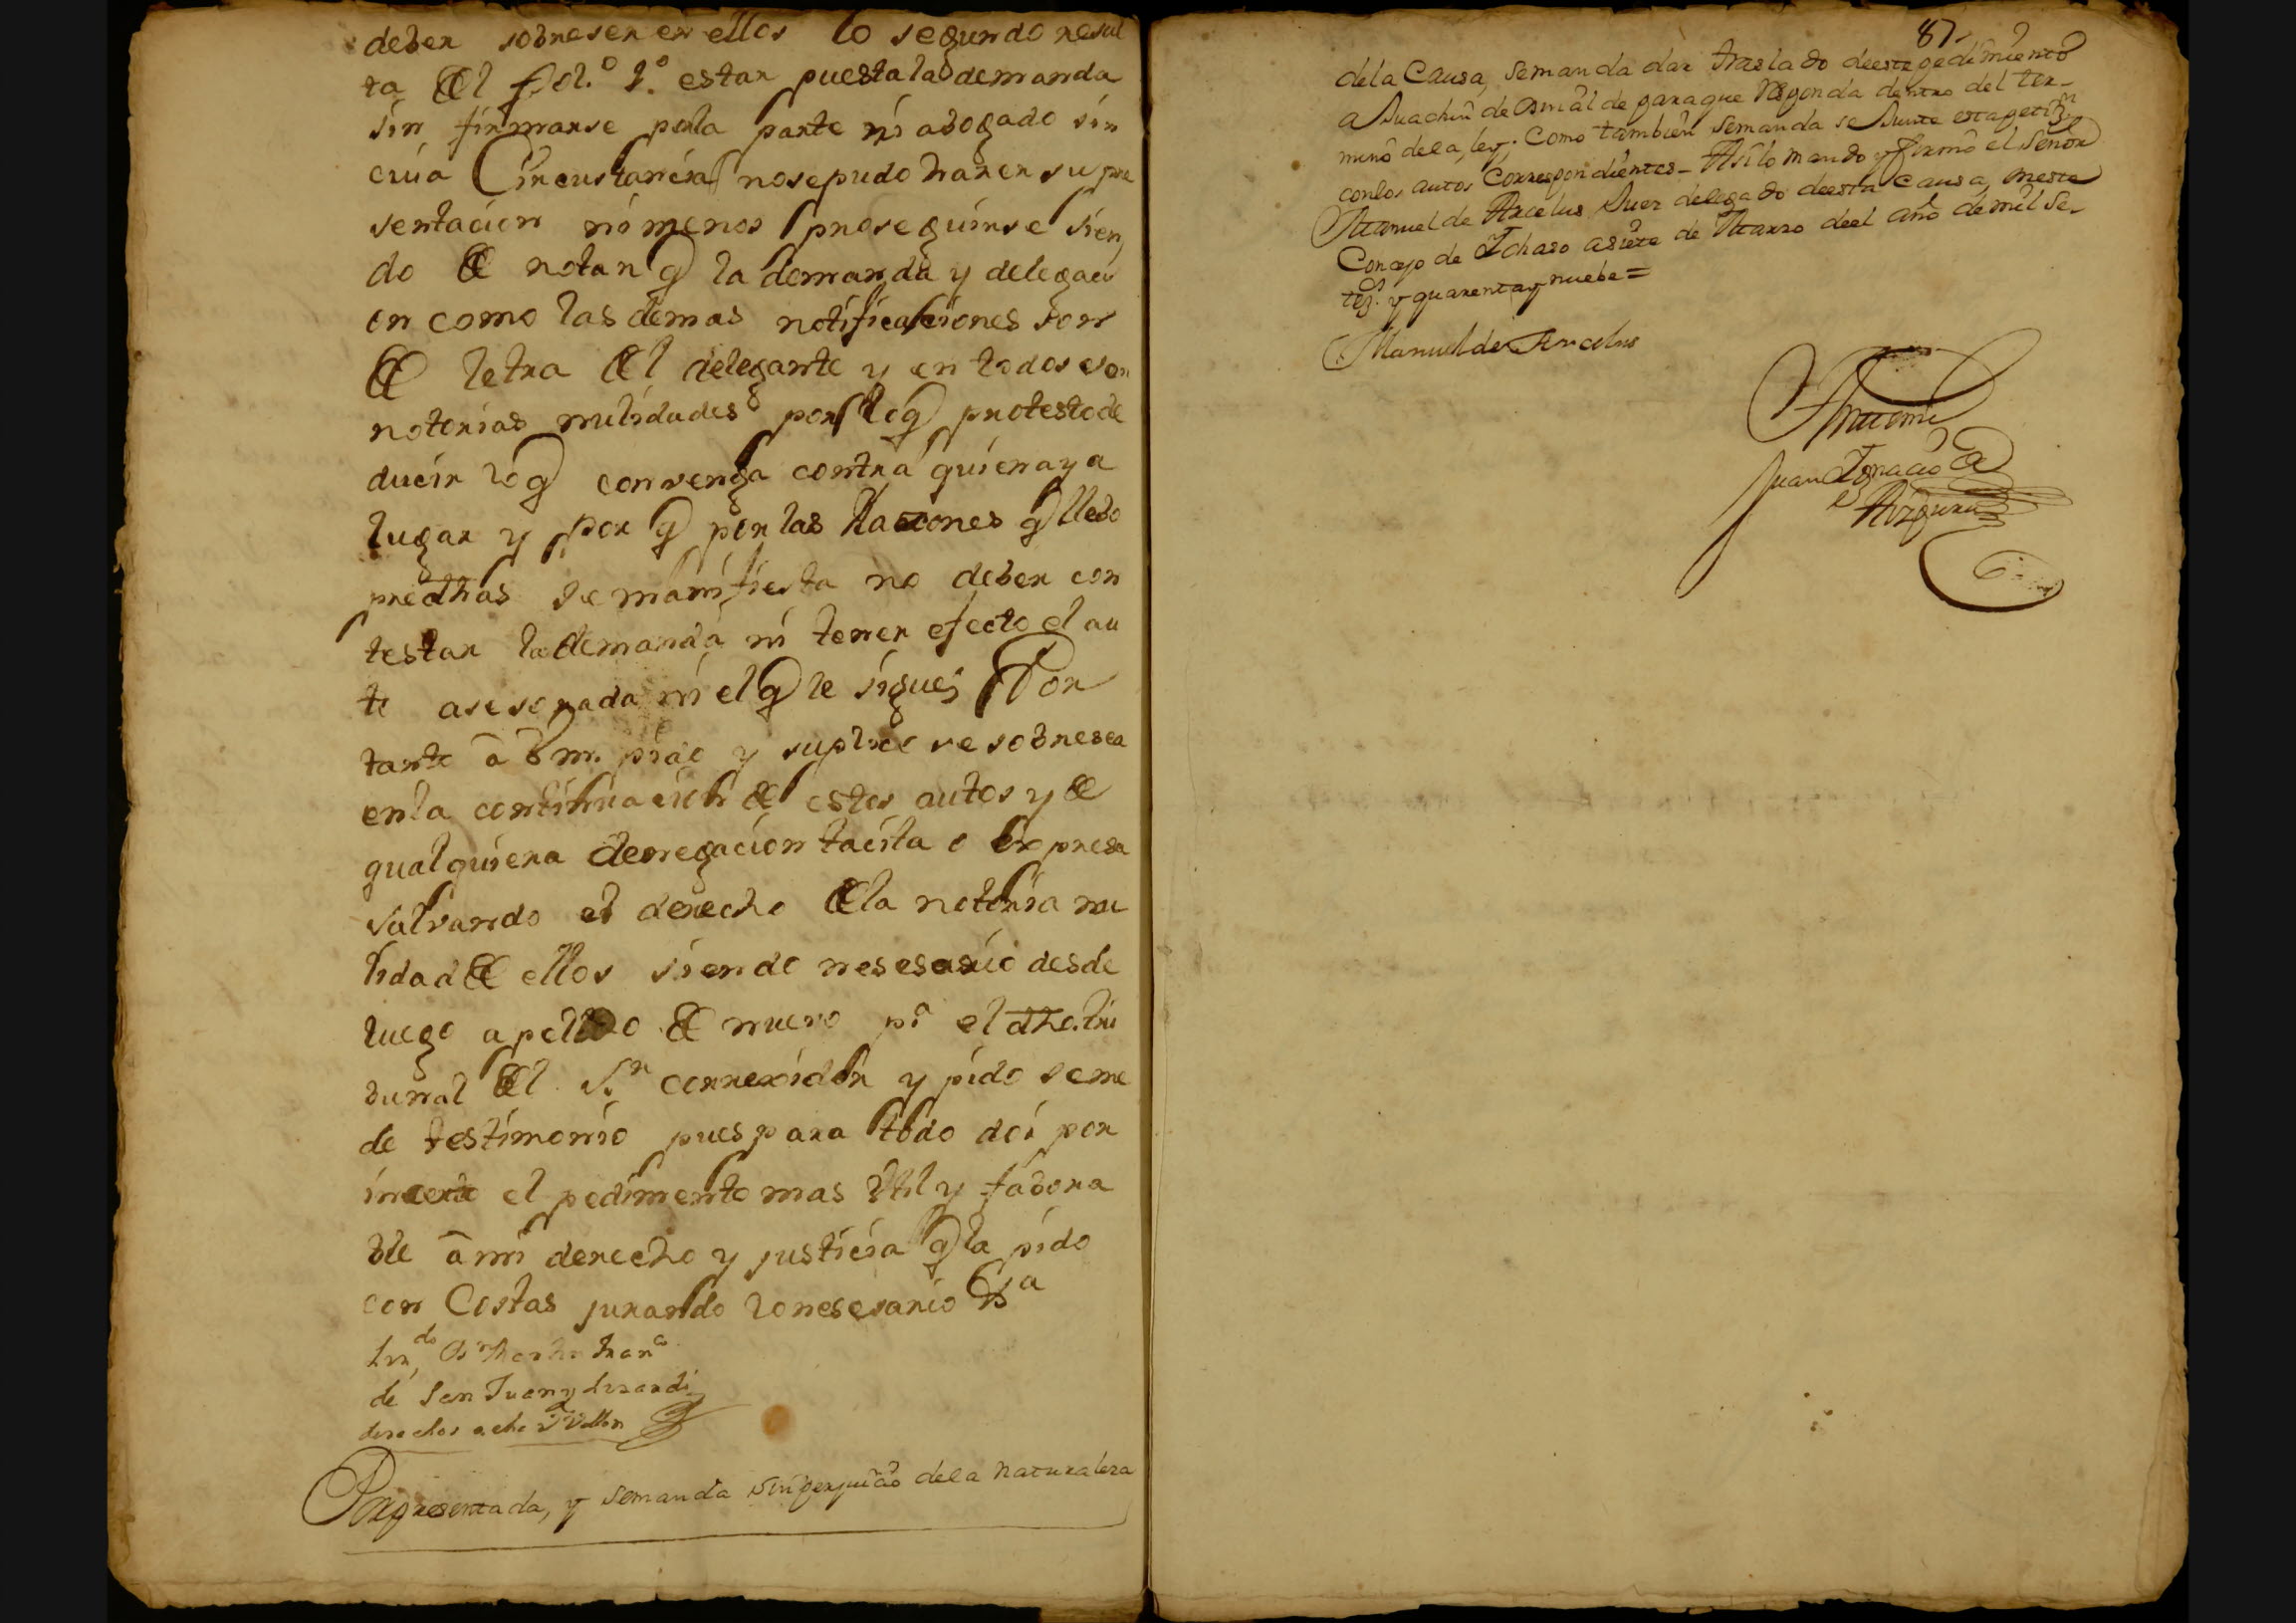 deber sobreser en ellos lo segundo resul
ta del fol.º 1.º estar puesta la demanda
sin firmarse por la parte ni abogado sin
cuia Circustancia no se pudo hazer su pre
sentacion ni menos proseguirse sien
do de notar q la demanda y delegaci
on como las demas notificaciones son
de letra del delegante y en todos son
notorias nulidades por lo q protesto de
ducir lo q convenga contra quien aya
lugar y por q por las Razones q llebo
predhas se manifiesta no deber con
testar la demanda ni tener efecto el au
to asesorada ni el q le sigue; Por
tanto a Vm. pido y suplico se sobresea
en la continuacion de estos autos y de
qualquiera denegacion tacita o expresa
salvando el derecho de la notoria nu
lidad de ellos siendo nesesario desde
luego apello de nuevo pª el dho. tri
bunal del S.r correxidor y pido se me
de testimonio pues para todo doi por
incerto el pedimento mas Util y fabora
ble a mi derecho y justicia q la pido
con Costas jurando lo nesesario &ª
Liz.do Dn Martin Franco
de San Juan y
derechos ocho Rs Vellon
Por presentada, y Se manda sin perjuicio de la naturaleza
87
de la Causa, Se manda dar traslado de este pedimiento
a Juachin de para que Responda dentro del ter-
mino de la ley. Como tambien Se manda se Junte esta petizn
con los autos Correspondientes- Asi lo mando y firmo el Señor
Manuel de Arcelus Juez delegado de esta Causa, en este
Concejo de Ichaso a siete de Marzo de el año de mil Se-
tezs. y quarenta y nuebe=
Manuel de Arcelus
Ante mi
Juan Ignacio de
Aizpuru